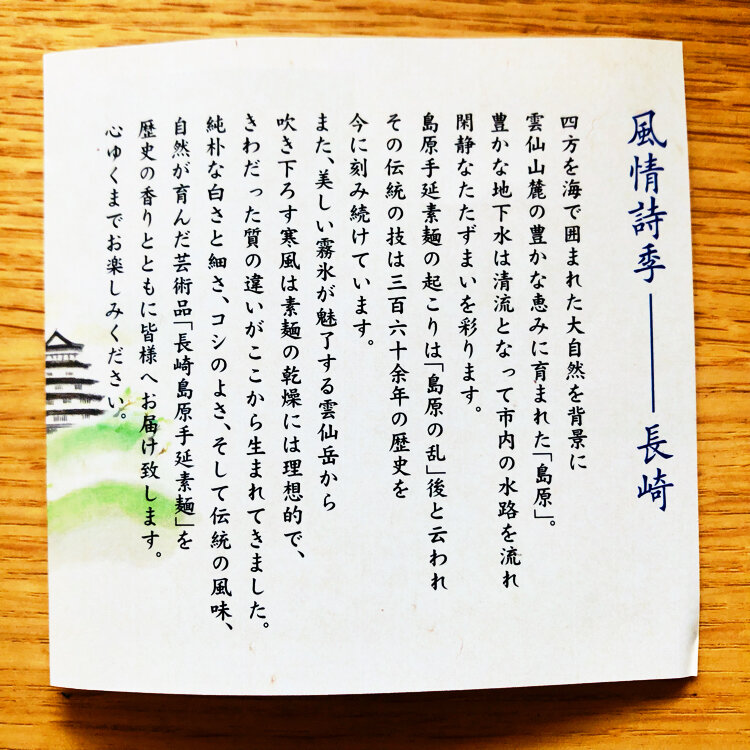 風情詩季──長崎
四方を海で囲まれた大自然を背景に
雲仙山麓の豊かな恵みに育まれた「島原」。
豊かな地下水は清流となって市内の水路を流れ
閑静なたたずまいを彩ります。
島原手延素麺の起こりは「島原の乱」後と云われ
その伝統の技は三百六十余年の歴史を
今に刻み続けています。
また、美しい霧氷が魅了する雲仙岳から
吹き下ろす寒風は素麺の乾燥には理想的で、
きわだった質の違いがここから生まれてきました。
純朴な白さと細さ、コシのよさ、そして伝統の風味、
自然が育んだ芸術品「長崎島原手延素麺」を
歴史の香りとともに皆様へお届け致します。
心ゆくまでお楽しみください。